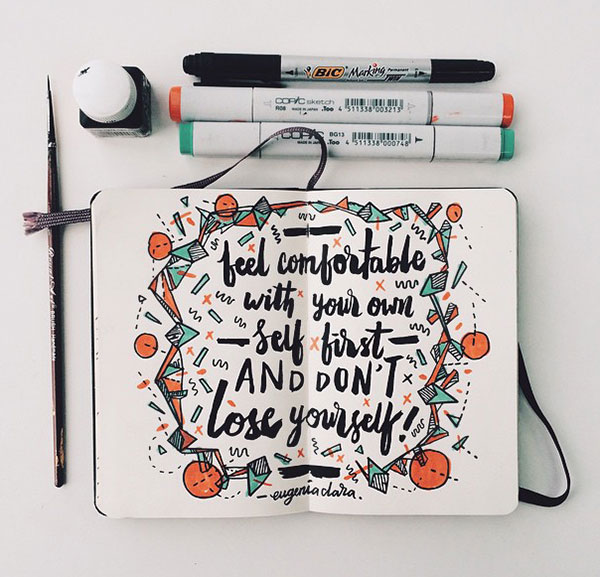 BIC Marking Permanent
COPIC sketch
R08 MADE IN JAPAN .Too 4 511338 003213
COPIC BG13
MADE IN JAPAN .Too 4 511338 000748
feel comfortable
with your own
self first
AND DON'T
lose yourself!
eugenia clara.